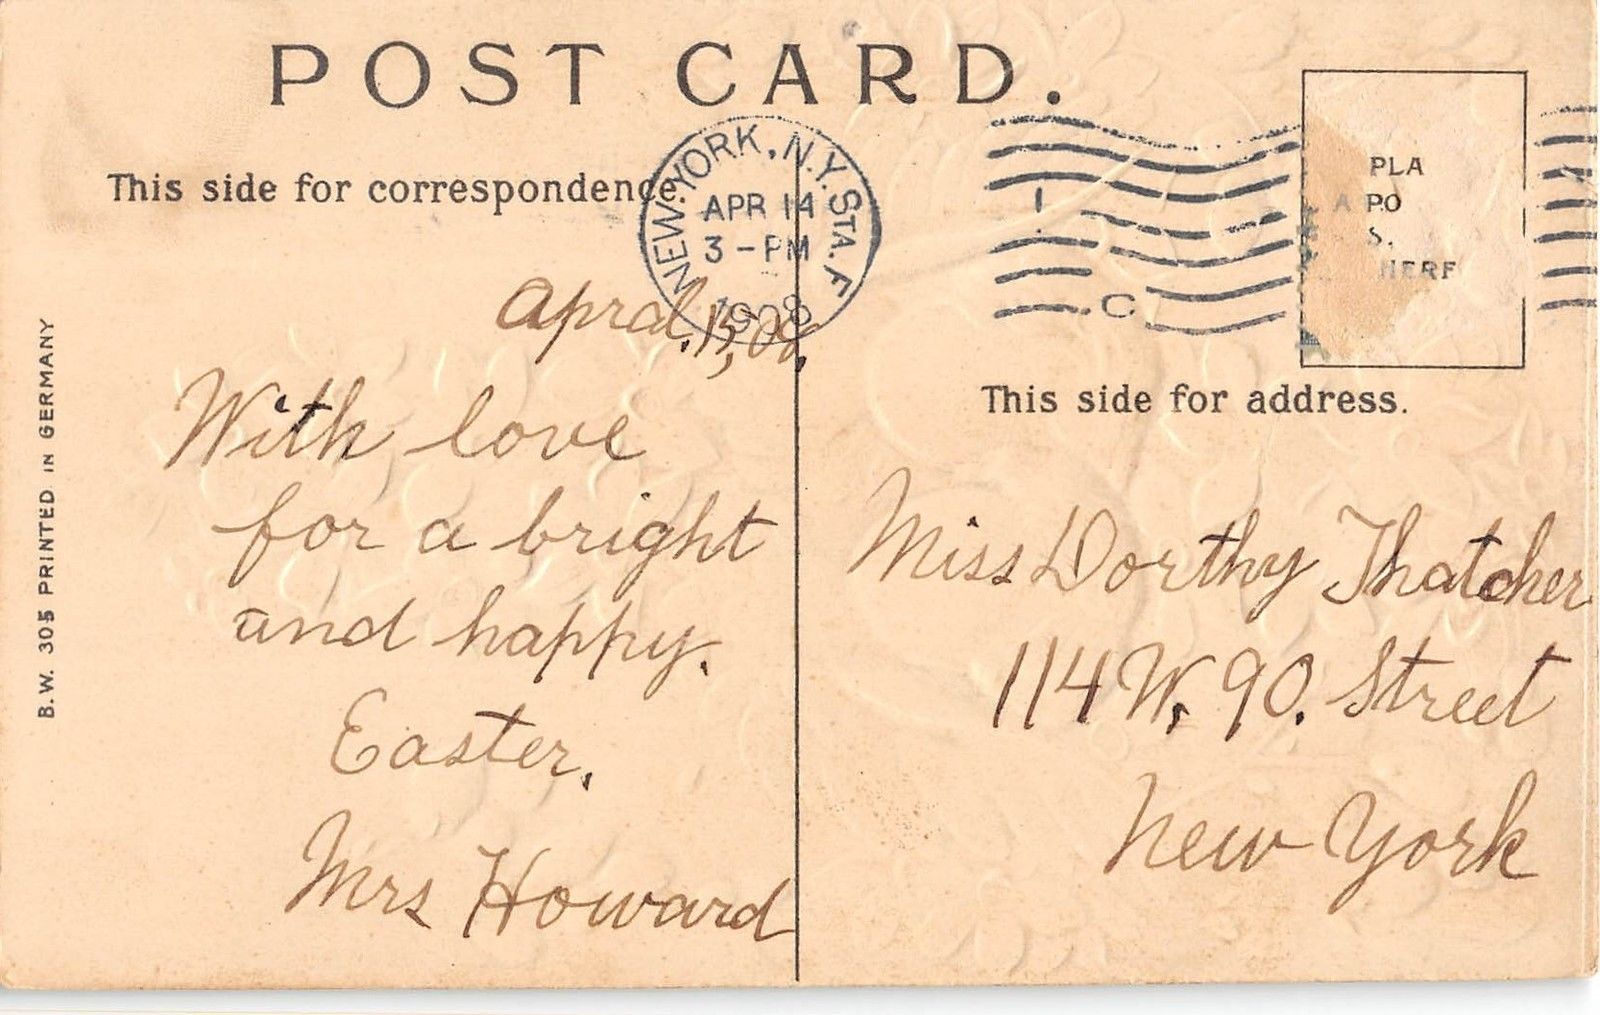 POST CARD.
This side for correspondence.
NEW YORK, N.Y. STA. F
APR 14
3-PM
1908
PLA
A PO
S.
HERE
Apral, 15, 08,
With love
for a bright
and happy.
Easter.
Mrs Howard
This side for address.
Miss Dorthy Thatcher
114 W. 90. Street
New York
B.W. 305 PRINTED IN GERMANY